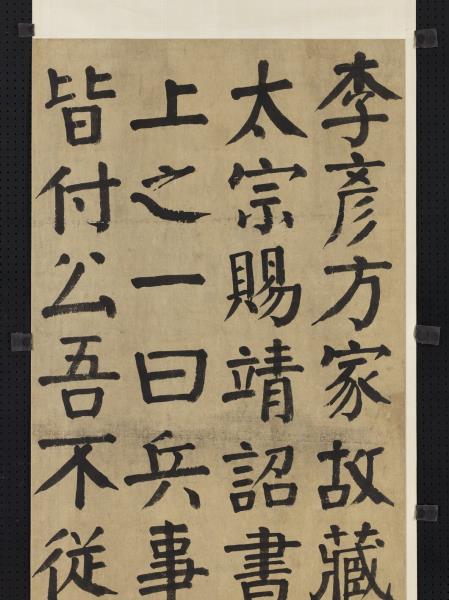 李彥方家故藏
太宗賜靖詔書
上之一曰兵事
皆付公吾不從